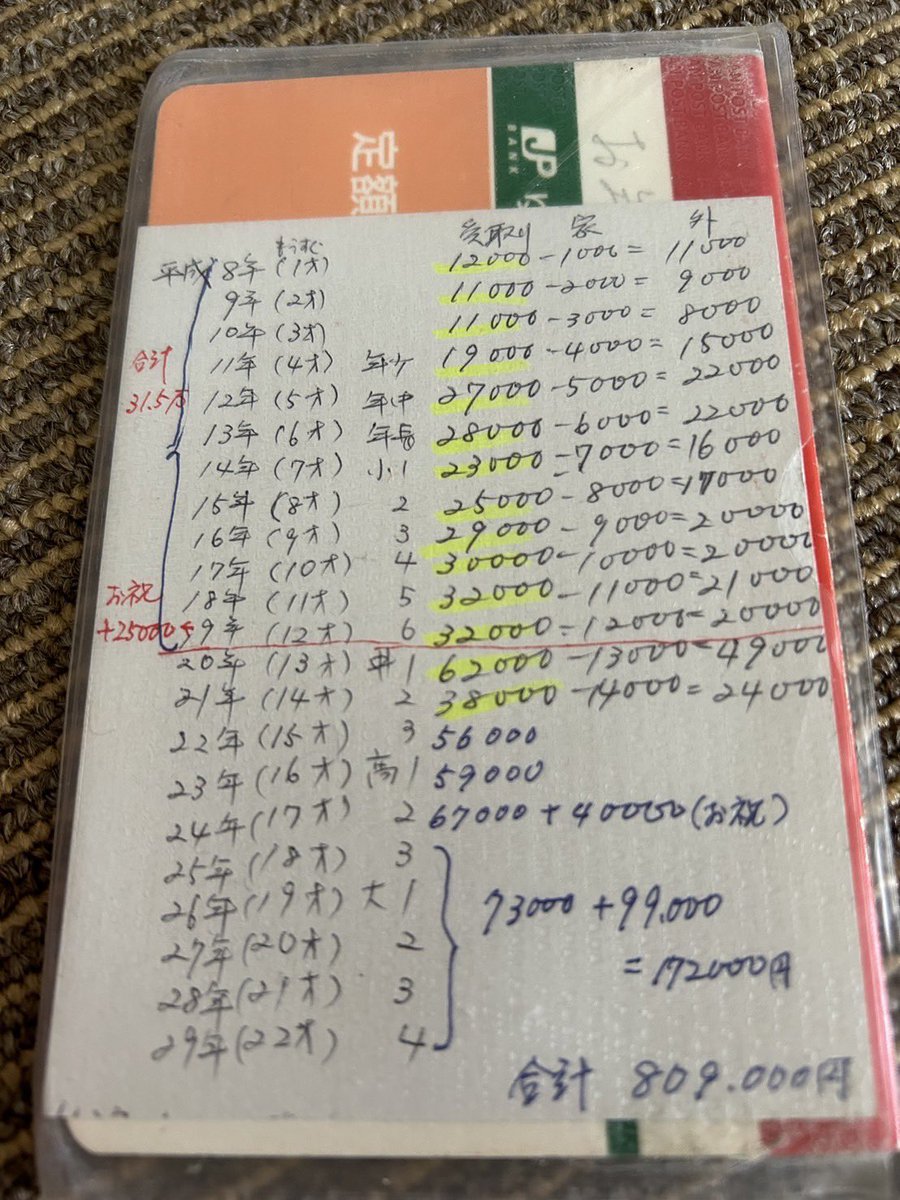 定額
JP
BANK
受取り 家 外
平成8年(1才) 12000-1000=11000
9年(2才) 11000-2000=9000
10年(3才) 11000-3000=8000
合計
31.5万
11年(4才) 年少 19000-4000=15000
12年(5才) 年中 27000-5000=22000
13年(6才) 年長 28000-6000=22000
14年(7才) 小1 23000-7000=16000
15年(8才) 2 25000-8000=17000
16年(9才) 3 29000-9000=20000
17年(10才) 4 30000-10000=20000
18年(11才) 5 32000-11000=21000
お祝
+25000
19年(12才) 6 32000-12000=20000
20年(13才) 中1 62000-13000=49000
21年(14才) 2 38000-14000=24000
22年(15才) 3 56000
23年(16才) 高1 59000
24年(17才) 2 67000+40000(お祝)
25年(18才) 3
26年(19才) 大1
27年(20才) 2
28年(21才) 3
29年(22才) 4
73000+99.000
=172000円
合計 809.000円